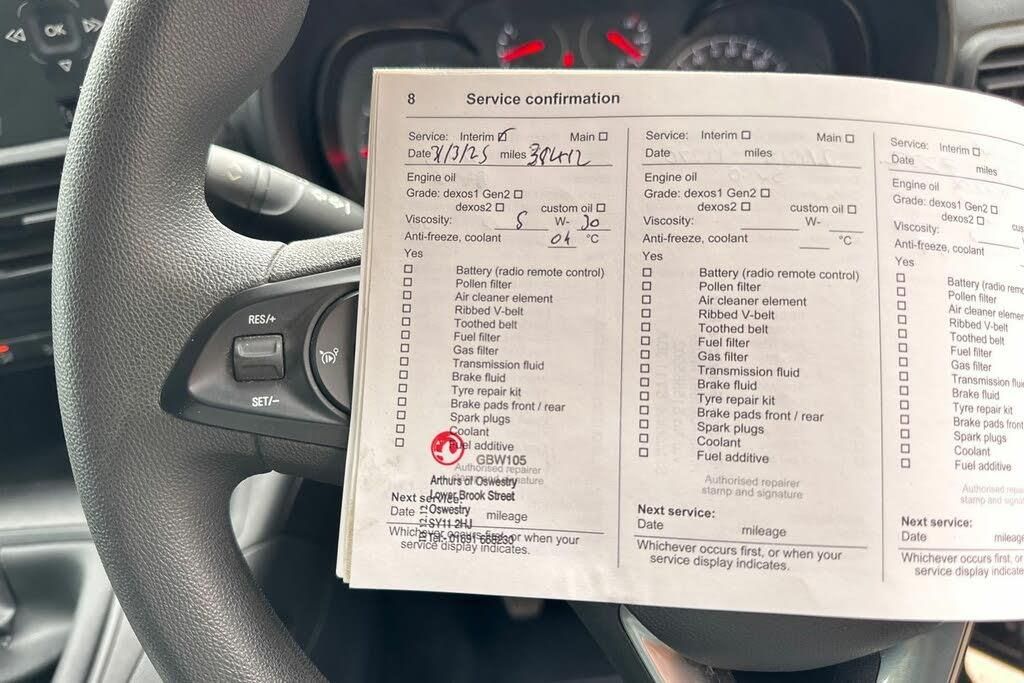 OK
RES/+
SET/–
8 Service confirmation
Service: Interim Main
Date /3/25 miles 38412
Engine oil
Grade: dexos1 Gen2
dexos2 custom oil
Viscosity: W- 30
Anti-freeze, coolant 04 °C
Yes
Battery (radio remote control)
Pollen filter
Air cleaner element
Ribbed V-belt
Toothed belt
Fuel filter
Gas filter
Transmission fluid
Brake fluid
Tyre repair kit
Brake pads front / rear
Spark plugs
Coolant
Fuel additive
GBW105
Authorised repairer
stamp and signature
Arthurs of Oswestry
Lower Brook Street
Oswestry
SY11 2HJ
Next service:
Date mileage
Whichever occurs first, or when your
service display indicates.
Service: Interim Main
Date miles
Engine oil
Grade: dexos1 Gen2
dexos2 custom oil
Viscosity: W-
Anti-freeze, coolant °C
Yes
Battery (radio remote control)
Pollen filter
Air cleaner element
Ribbed V-belt
Toothed belt
Fuel filter
Gas filter
Transmission fluid
Brake fluid
Tyre repair kit
Brake pads front / rear
Spark plugs
Coolant
Fuel additive
Authorised repairer
stamp and signature
Next service:
Date mileage
Whichever occurs first, or when your
service display indicates.
Service: Interim
Date miles
Engine oil
Grade: dexos1 Gen2
dexos2 cus
Viscosity:
Anti-freeze, coolant
Yes
Battery (radio remo
Pollen filter
Air cleaner elemen
Ribbed V-belt
Toothed belt
Fuel filter
Gas filter
Transmission flui
Brake fluid
Tyre repair kit
Brake pads front
Spark plugs
Coolant
Fuel additive
Authorised repa
stamp and signat
Next service:
Date mileage
Whichever occurs first, or
service display indicate